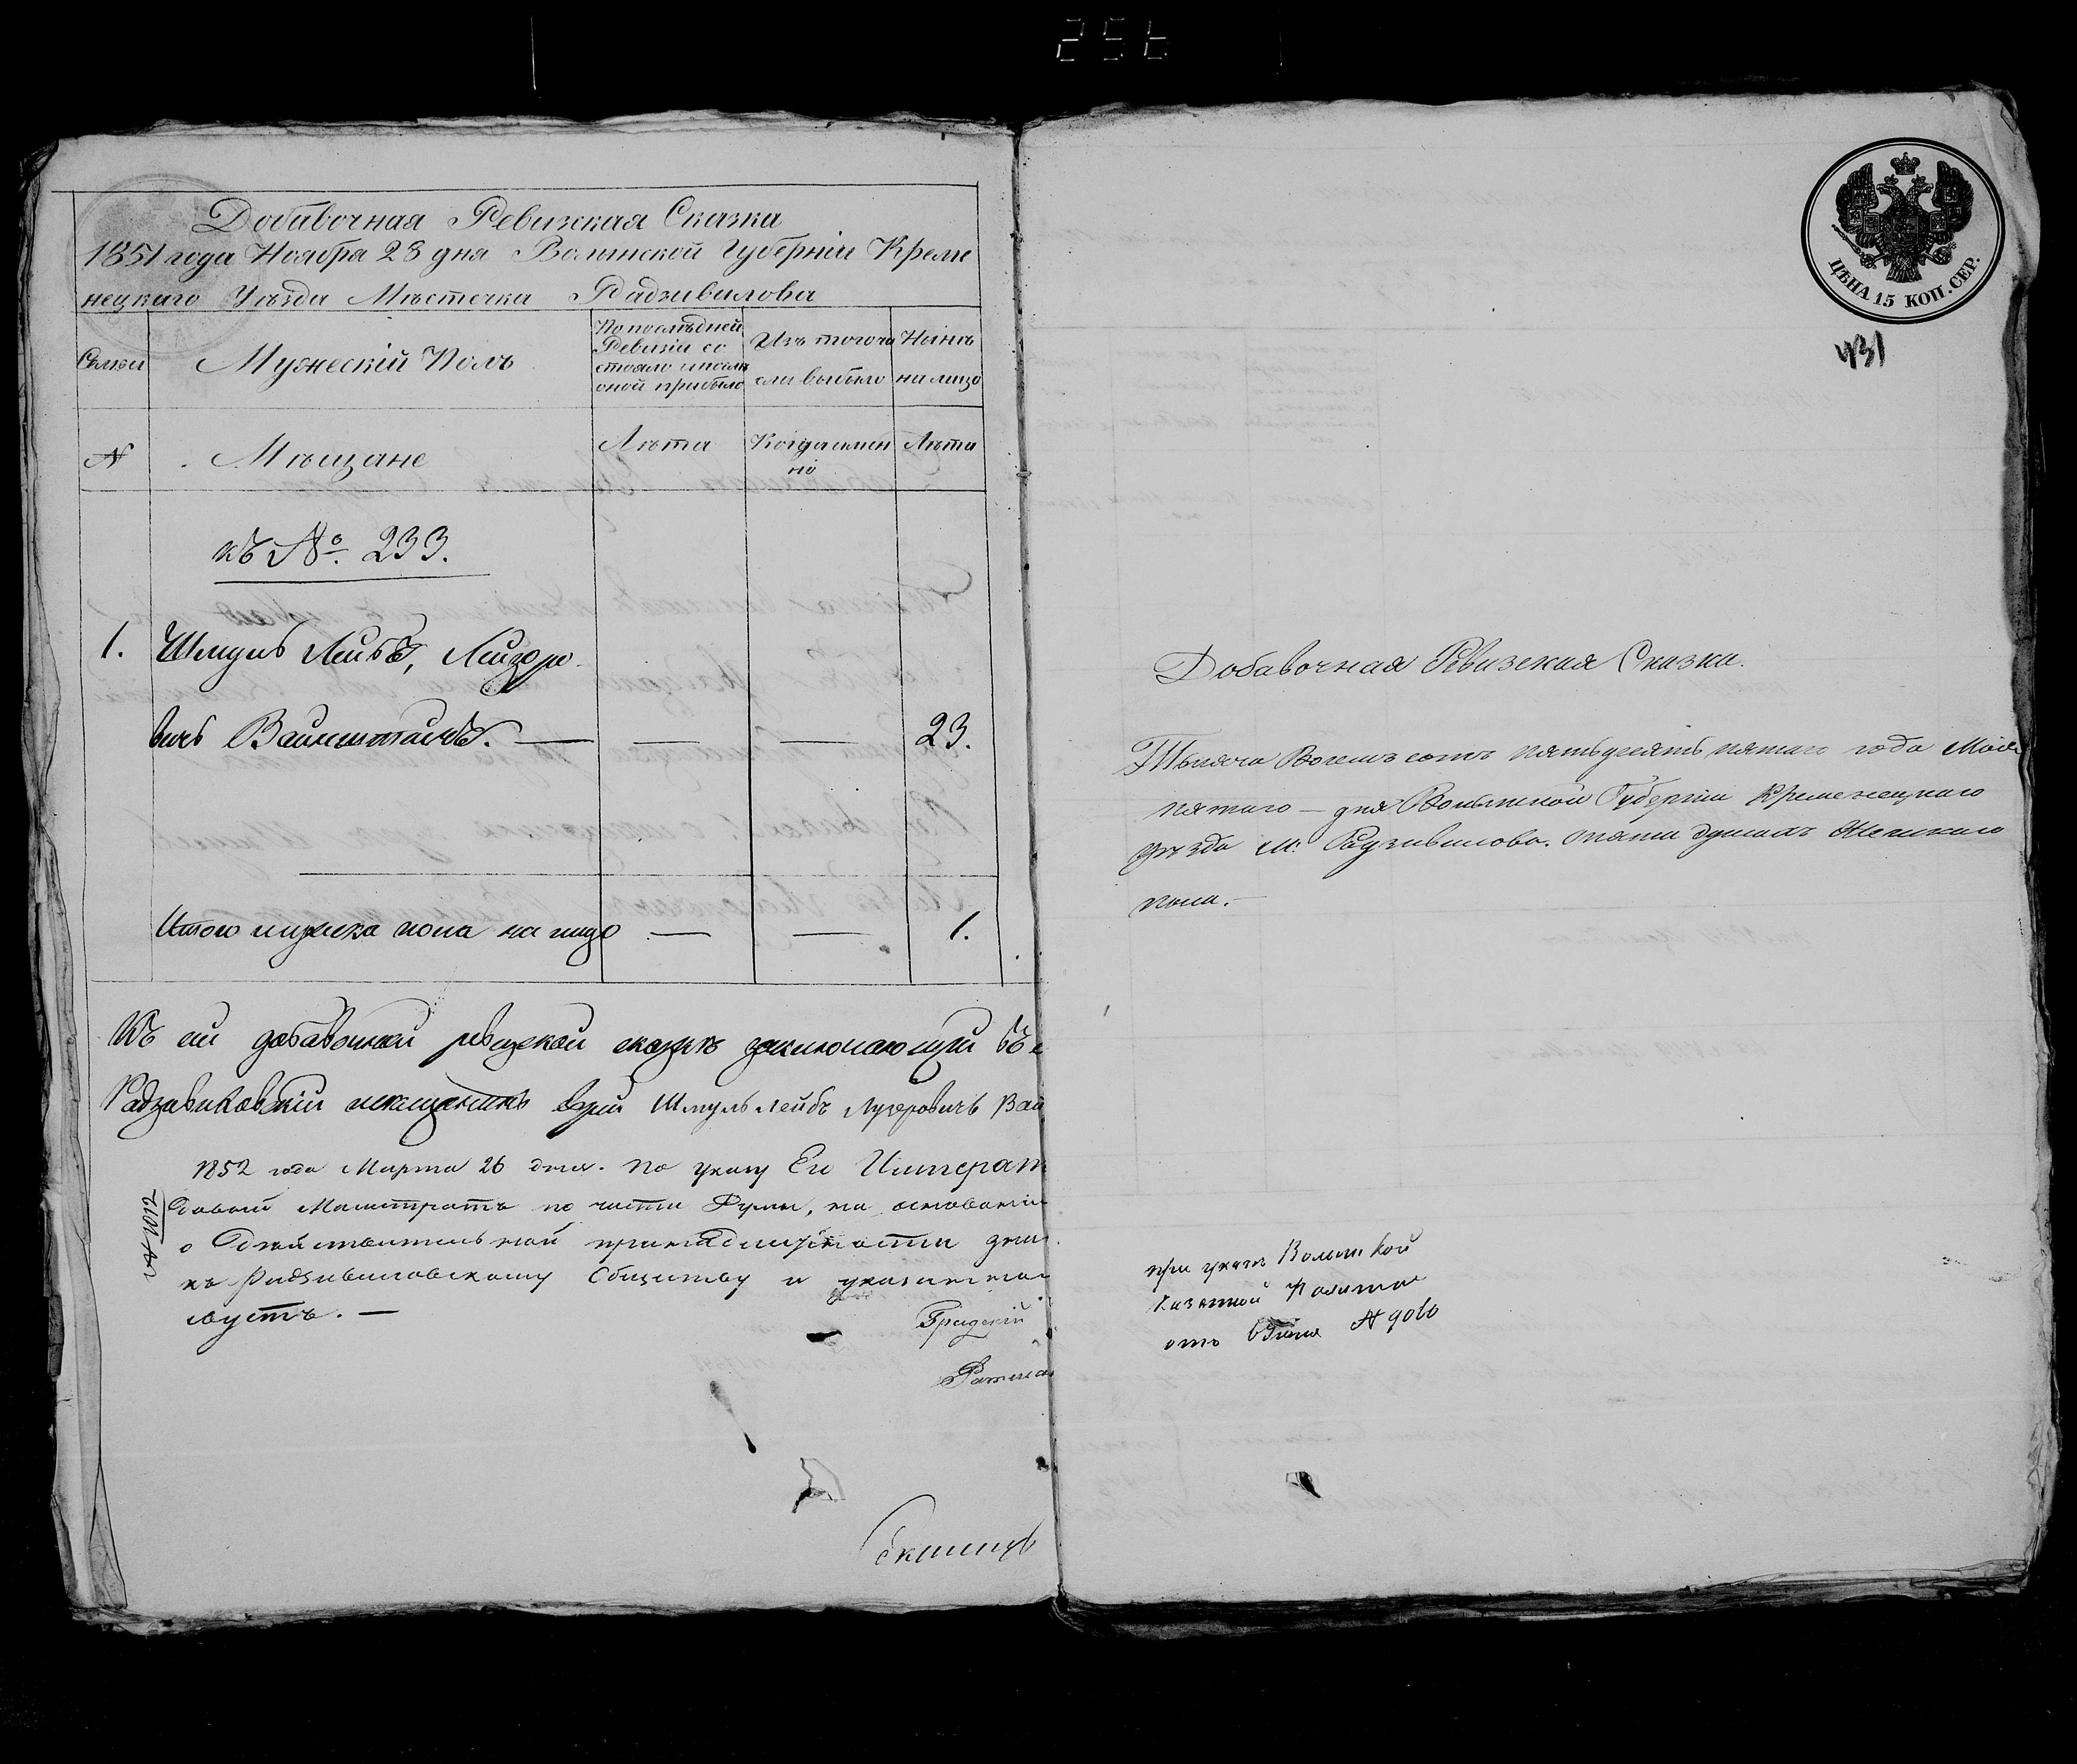 Добавочная Ревижкая Сказка
1851 года Ноября 28 дня Волынской Губерніи Креме
нецкаго Уѣзда Мѣстечка Радзивилова
Семьи
Мужескій Полъ
По послѣдней
Ревизіи со
стояло и послѣ
оной прибыло
Изъ того чи
сла выбыло
Нынѣ
на лицо
№
Мѣщане
Лѣта
Когда имен
но
Лѣта
къ №. 233.
1. Шмуль Лейбъ, Лейзоро
вичъ Вайнштейнъ. — — — 23.
Итого мужеска пола на лицо — — 1.
Къ сей добавочной ревизской сказкѣ
Радзивиловскій мещанинъ Шмуль Лейбъ Лузеровичъ Вай
1852 года Марта 26 дня. По указу Его Императ
Магистратъ по части Думы, на основаніи
о действительной принадлежности
къ Радзивиловскому Обществу и
Градскій
Ратман
256
ЦѢНА 15 КОП. СЕР.
431
Добавочная Ревизская Сказка.
Тысяча Восемь сотъ пятьдесятъ пятаго года Мая
пятаго — дня Волынской Губерніи Кременецкаго
уѣзда м. Радзивилова. о пяти душахъ Женскаго
пола. —
при указѣ Волынской
Казенной Палаты
отъ 6 Іюня № 9060